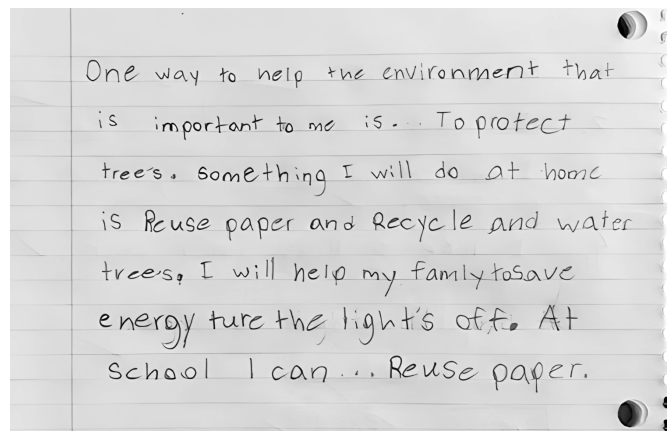 One way to help the environment that
is important to me is... To protect
tree's. something I will do at home
is Reuse paper and Recycle and water
tree's, I will help my famly to save
energy ture the light's off. At
school I can... Reuse paper.